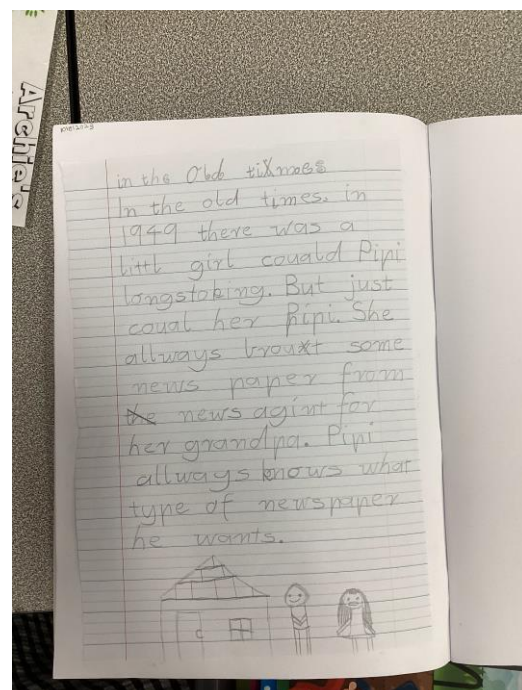 Archie's
in the Old times
In the old times, in
1949 there was a
littl girl couald Pipi
longstoking. But just
coual her Pipi. She
allways brouxt some
news paper from
the news agint for
her grandpa. Pipi
allways knows what
type of newspaper
he wants.